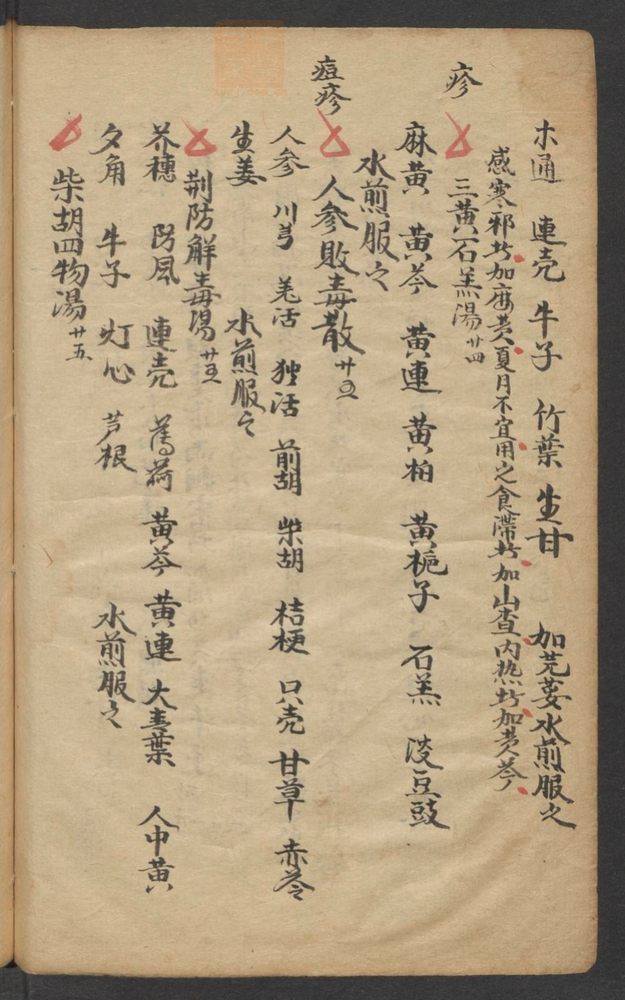 木通 連壳 牛子 竹葉 生甘 加芫荽水煎服之
感寒邪者加麻黄夏月不宜用之食滯者加山查内热者加黄芩
疹
三黄石羔湯 廿四
麻黄 黄芩 黄連 黄柏 黄栀子 石羔 淡豆豉
水煎服之
痘疹
人參敗毒散 廿四
人参 川芎 羌活 独活 前胡 柴胡 桔梗 只壳 甘草 赤苓
生姜 水煎服之
荆防解毒湯 廿五
芥穗 防風 連壳 薄荷 黄芩 黄連 大青葉 人中黄
夕角 牛子 灯心 芦根 水煎服之
柴胡四物湯 廿五